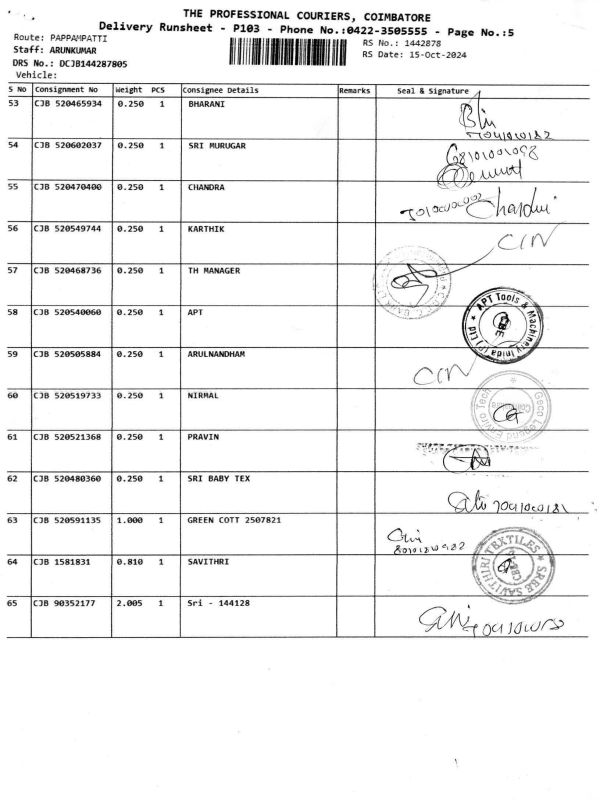 THE PROFESSIONAL COURIERS, COIMBATORE
Delivery Runsheet - P103 - Phone No.:0422-3505555 - Page No.:5
Route: PAPPAMPATTI
RS No.: 1442878
Staff: ARUNKUMAR
RS Date: 15-Oct-2024
DRS No.: DCJB144287805
Vehicle:
S No Consignment No Weight PCS Consignee Details Remarks Seal & Signature
53 CJB 520465934 0.250 1 BHARANI
54 CJB 520602037 0.250 1 SRI MURUGAR
55 CJB 520470400 0.250 1 CHANDRA
56 CJB 520549744 0.250 1 KARTHIK
CIN
57 CJB 520468736 0.250 1 TH MANAGER
58 CJB 520540060 0.250 1 APT
APT Tools & Machinery India (P) Ltd
CBE
59 CJB 520505884 0.250 1 ARULNANDHAM
CIN
60 CJB 520519733 0.250 1 NIRMAL
Geco Legend Enviro Tech
61 CJB 520521368 0.250 1 PRAVIN
62 CJB 520480360 0.250 1 SRI BABY TEX
63 CJB 520591135 1.000 1 GREEN COTT 2507821
64 CJB 1581831 0.810 1 SAVITHRI
SREE SAVITHIRI TEXTILES
65 CJB 90352177 2.005 1 Sri - 144128